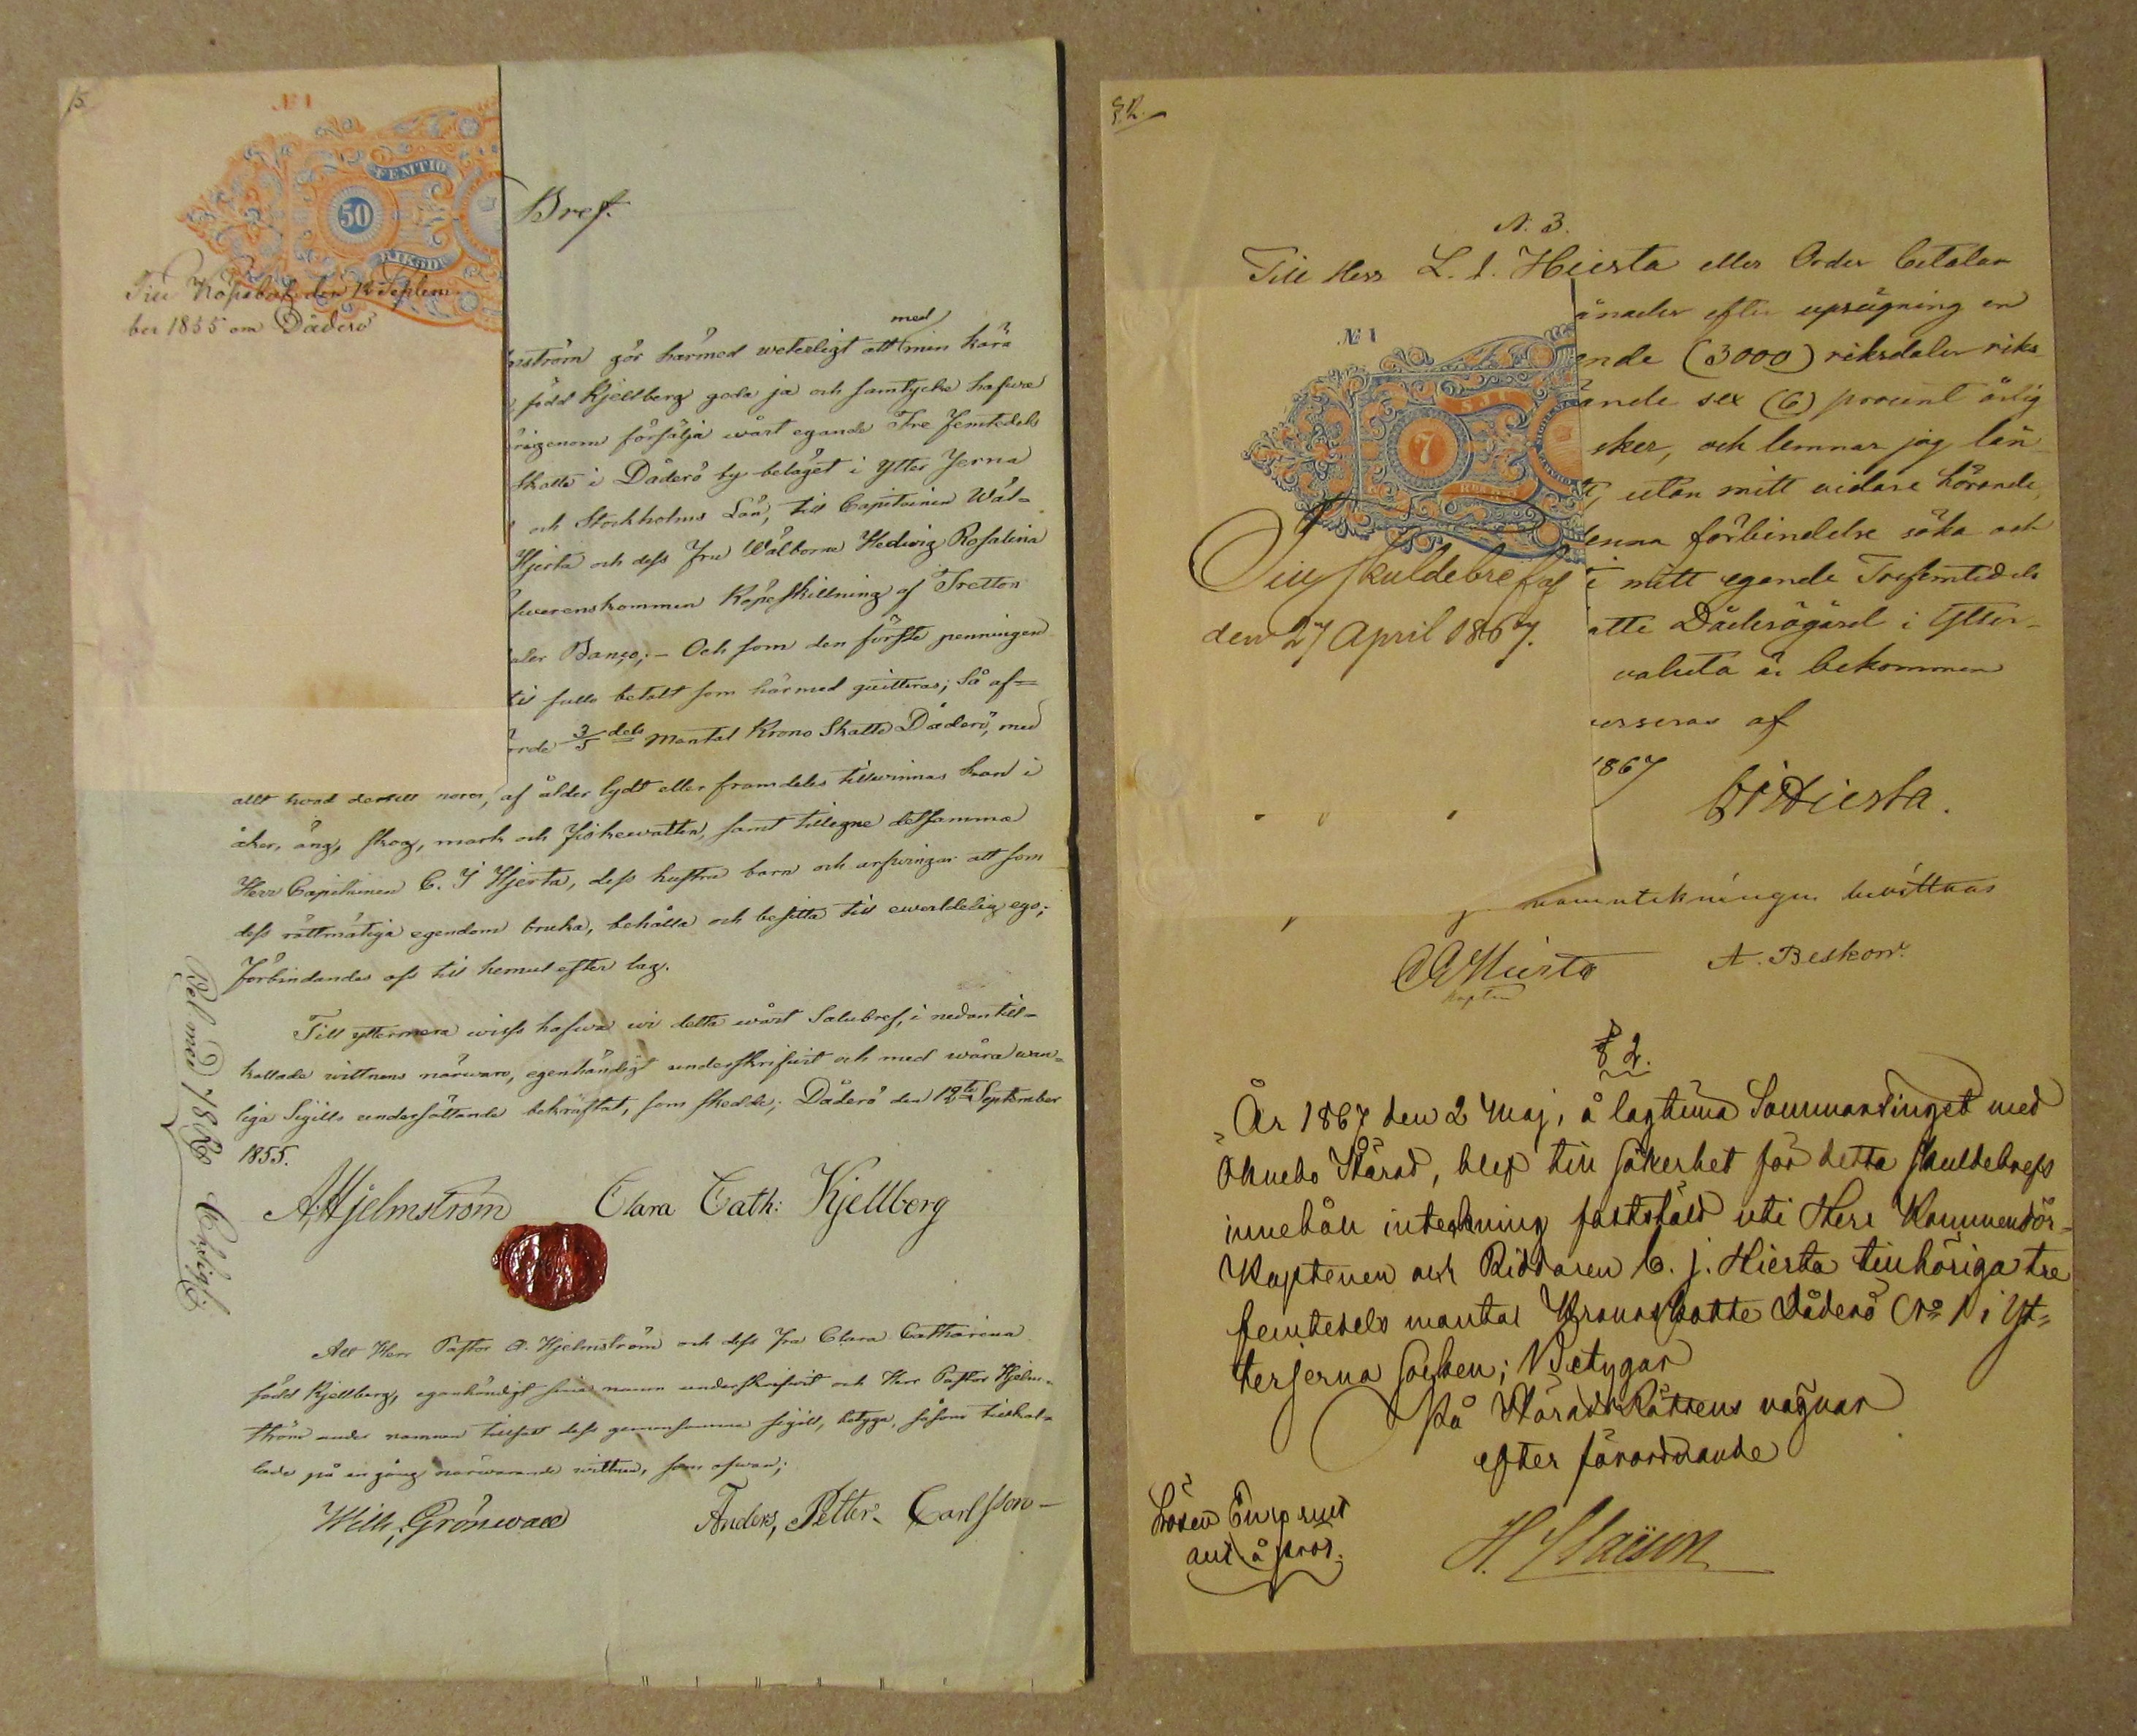 15.
N:o 1
FEMTIO
50
RIKSD
Till Köpebref den 12 Septem-
ber 1855 om Dåderö
Bref.
med
nström gör härmed weterligt att min kära
född Kjellberg goda ja och samtycke hafwa
rigenom försälja wårt egande Tre femtedels
Skatte i Dåderö by belägit i Ytter Jerna
och Stockholms Län, till Capitainen Wäl=
Hjerta och dess Fru Wälborna Hedwig Rosalina
fwerenskommen Köpeskillning af Tretton
aler Banco; – Och som den förste penningen
til fullo betalt som härmed quitteras; Så af=
örde 3/5 dels Mantal Krono Skatte Dåderö, med
allt hvad dertill hörer, af ålder lydt eller framdeles tillwinnas kan i
åker, äng, skog, mark och Fiskewatten, samt tillegne detsamma
Herr Capitainen C. J Hjerta, dess hustru barn och arfwingar att som
dess rättmätiga egendom bruka, behålla och besitta till ewerldelig ego;
Förbindandes oss til hemul efter lag.
Till yttermera wisso hafwa wi detta wårt Salubref, i nedantill=
kallade wittnens närwaro, egenhändigt underskrifwit och med wåra wan=
liga Sigills undersättande bekräftat, som skedde; Dåderö den 12te September
1855.
A. Hjelmström Clara Cath: Kjellberg
Att Herr Pastor A. Hjelmström och dess Fru Clara Catharina
född Kjellberg, egenhändigt sina namn underskrifwit och Herr Pastor Hjelm=
ström under namnen tillsatt dess gemensamma sigill, betyga, såsom tillkal=
lade på en gång närwarande wittnen, som ofwan;
Wilh. Grönwall Anders, Petter. Carlsson –
§ 2.
N. 3.
Till Herr L. J. Hierta eller Order betalar
ånader efter uppsägning en
ende (3000) riksdaler riks
ände sex (6) procent årlig
sker, och lemnar jag lån
tt, utan mitt vidare hörande,
denna förbindelse söka och
i mitt egande Trefemtedels
atte Dåderögård i Ytter-
valuta är bekommen
verseras af
1867
C J Hierta.
N:o 1
SJU
7
Till skuldebref af
den 27 April 1867.
namntekningen bevittnas
Hierta A. Beskow.
Kapten
§ 2.
År 1867 den 2 Maj, å lagtima Sommartinget med
Öknebo Härad, blef till säkerhet för detta skuldebrefs
innehåll inteckning fastställd uti Herr Kommendör=
Kaptenen och Riddaren C. J. Hierta tillhöriga tre
femtedels mantal Kronoskatte Dåderö No 1 i Yt=
terjerna socken; Betygar
På Häradsrättens vägnar
efter förordnande
Lösen En rd
H.